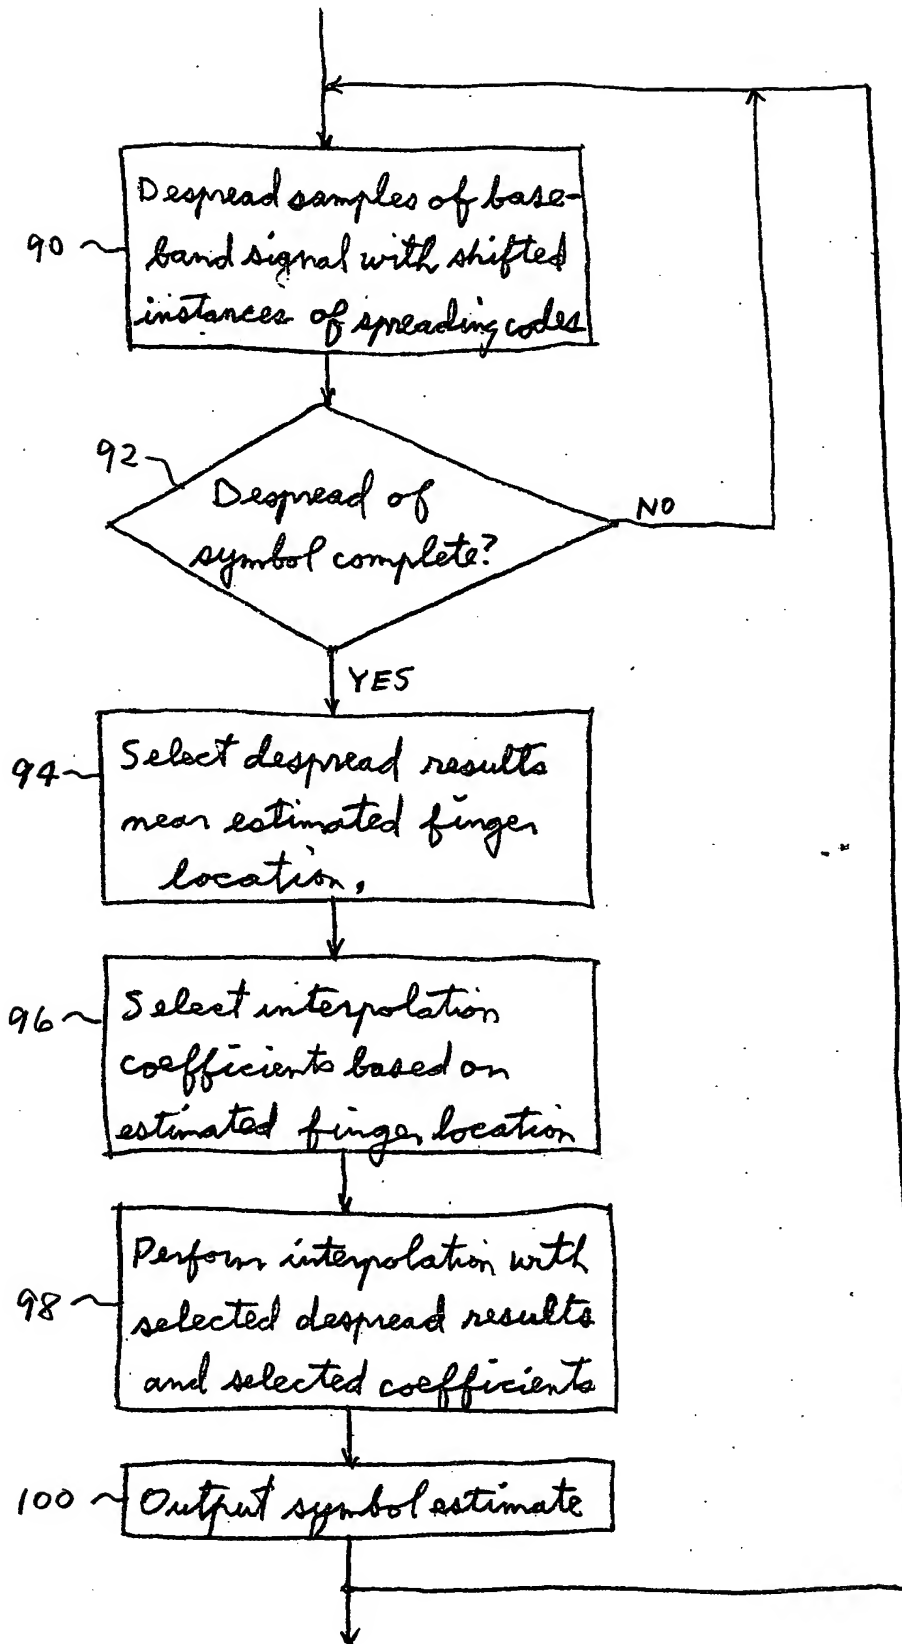 Despread samples of base-
90 band signal with shifted
instances of spreading codes
92
Despread of
symbol complete?
NO
YES
94 Select despread results
near estimated finger
location.
Select interpolation
96 coefficients based on
estimated finger location
Perform interpolation with
98 selected despread results
and selected coefficients
100 Output symbol estimate